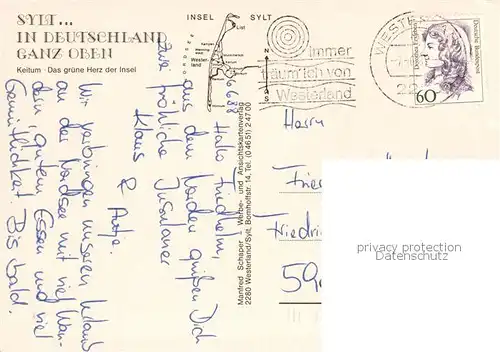 SYLT...
IN DEUTSCHLAND
GANZ OBEN
Keitum · Das grüne Herz der Insel
INSEL SYLT
List
Kampen
Wester-
land
Immer
träum' ich von
Westerland
WESTERLAND
Deutsche Bundespost
60
6.6.88
Hallo Friedhelm,
aus dem Norden grüßen Dich
zwei fröhliche Insulaner
Klaus & Antje.
Wir verbringen unseren Urlaub
an der Nordsee mit viel Wan-
dern, gutem Essen und viel
Gemütlichkeit. Bis bald.
Manfred Schaper · Werbe- und Ansichtskartenverlag
2280 Westerland/Sylt, Bomhoffstr. 14, Tel. (0 46 51) 2 47 00
Herrn
Frie
Friedri
59
privacy protection
Datenschutz